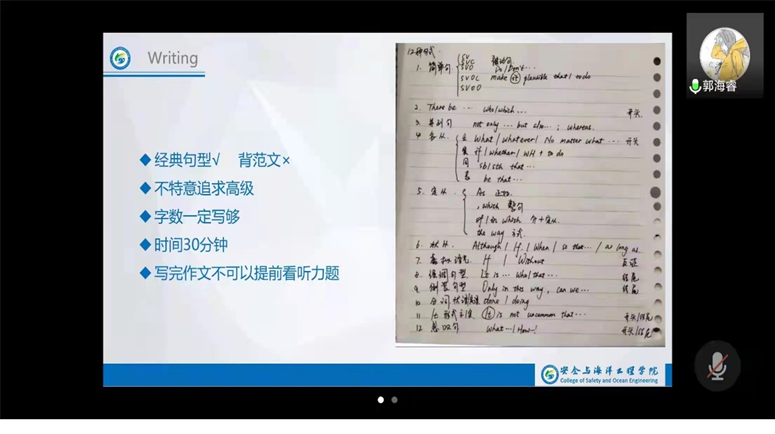 Writing
◆经典句型√ 背范文×
◆不特意追求高级
◆字数一定写够
◆时间30分钟
◆写完作文不可以提前看听力题
12种句式.
1. 简单句 SV
SVC
SVO
SVOC make it plausible that / to do
SVOO
2. There be ... who/which... 开头
3. 并列句 not only ... but also ... ; whereas.
4. 名从. 主 What / whatever / No matter what ... 开头
宾 if / whether / WH + to do
同 sb/sth that ...
表 be that ...
5. 定从. As
, which 整句
of / in which
the way 方式.
6. 状从. Although / If / When / so that ... / as long as
7. 虚拟语气 If / Without
8. 强调句型 It is ... who/that ... 结尾
9. 倒装句型 Only in this way, can we ... 结尾
10 分词状语 done / doing
11 it 形式主语 It is not uncommon that ... 开头/结尾
12 感叹句 What ...! How ...! 开头/结尾
安全与海洋工程学院
College of Safety and Ocean Engineering
郭海睿